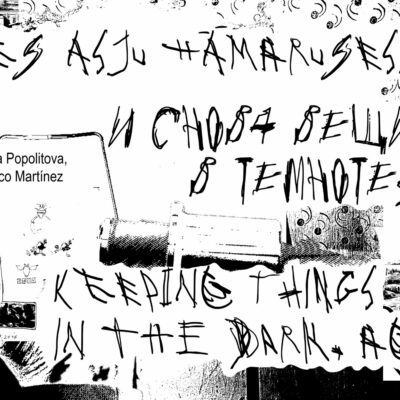 ES ASJU HÄMARUSES,
И СНОВА ВЕЩИ
В ТЕМНОТЕ
a Popolitova,
co Martínez
KEEPING THINGS
IN THE DARK, AG